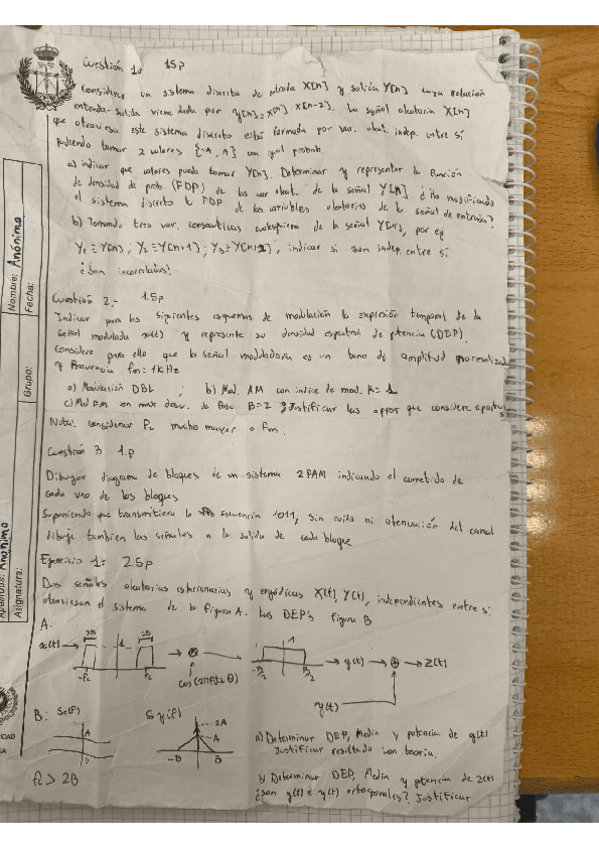 Cuestión 1. 1.5p
Considerar un sistema discreto de entrada X[n] y salida Y[n] cuya relación
entrada-salida viene dada por y[n] = x[n] · x[n-2]. La señal aleatoria X[n]
que atraviesa este sistema discreto está formada por var. aleat. indep. entre sí
pudiendo tomar 2 valores {-A, A} con igual probab.
a) indicar que valores puede tomar Y[n]. Determinar y representar la función
de densidad de prob. (FDP) de las var aleat. de la señal Y[n] ¿Ha modificado
el sistema discreto la FDP de las variables aleatorias de la señal de entrada?
b) Tomando tres var. consecutivas cualquiera de la señal Y[n], por ej
Y1 = Y[n] ; Y2 = Y[n+1] ; Y3 = Y[n+2], indicar si son indep. entre sí
¿Son incorreladas?
Cuestión 2.- 1.5p
Indicar para los siguientes esquemas de modulación la expresión temporal de la
señal modulada y represente su densidad espectral de potencia (DEP).
Considere para ello que la señal moduladora es un tono de amplitud normalizada
y frecuencia fm = 1kHz
a) Modulación DBL ; b) Mod. AM con indice de mod. = 1
c) Mod FM con max desv. de fase B=2 Justificar las aprox que considere oportunas
Nota: considerar Fc mucho mayor a fm.
Cuestión 3 1.p
Dibujar diagrama de bloques de un sistema 2PAM indicando el cometido de
cada uno de los bloques
Suponiendo que transmitiera la secuencia 1011, sin ruido ni atenuación del canal
dibuje tambien las señales a la salida de cada bloque
Ejercicio 1: 2.5p
Dos señales aleatorias estacionarias y ergódicas X(t), Y(t), independientes entre sí
atraviesan el sistema de la figura A. Las DEP's figura B
A.
2B 2B
x(t) 1 1 g(t) z(t)
-fc fc
cos(2πfct + θ)
y(t)
B: Sx(f) Sy(f)
A 2A
A
-B B
a) Determinar DEP, Media y potencia de g(t)
Justificar resultado con teoría.
b) Determinar DEP, Media y potencia de z(t)
¿son g(t) e y(t) ortogonales? Justificar
fc > 2B
Nombre: Anónimo
Fecha:
Grupo:
Anónimo
Asignatura: